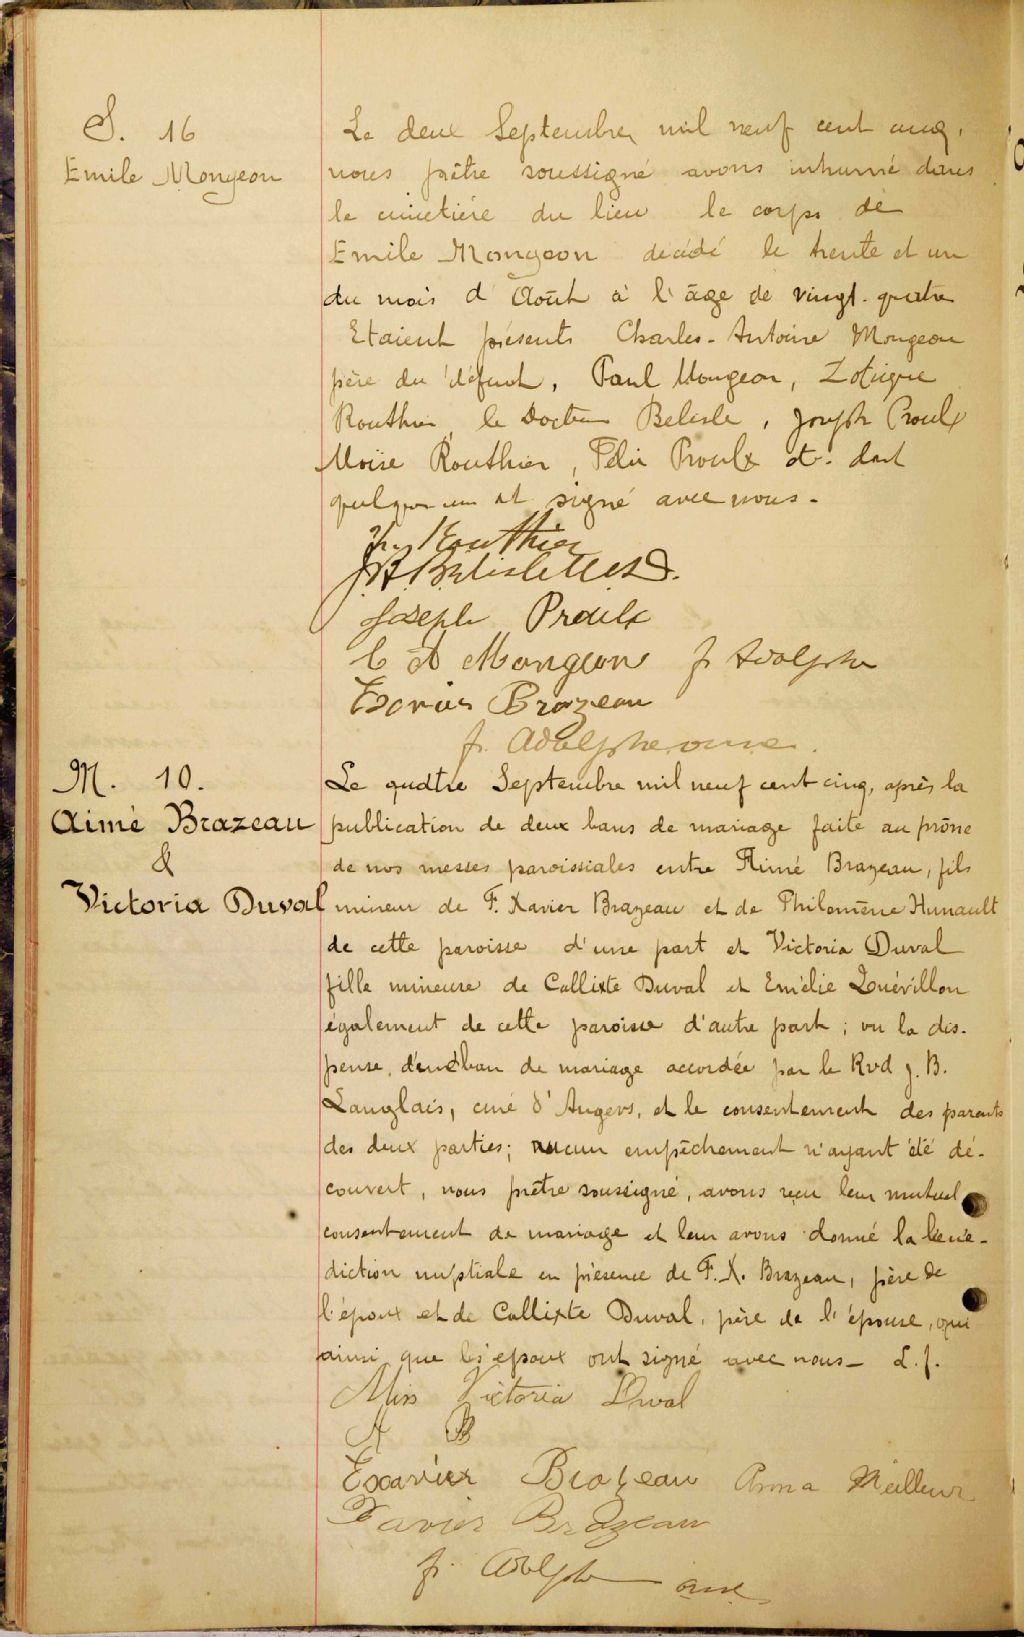 S. 16
Emile Mongeon
Le deux Septembre mil neuf cent cinq,
nous prêtre soussigné avons inhumé dans
le cimetière du lieu le corps de
Emile Mongeon décédé le trente et un
du mois d'Août à l'âge de vingt-quatre
Etaient présents Charles-Antoine Mongeon
père du défunt, Paul Mongeon, Zotique
Routhier, le Docteur Belisle, Joseph Proulx
Moïse Routhier, Félix Proulx etc. dont
quelques uns ont signé avec nous.
Routhier
Joseph Proulx
C A Mongeon fr Adolphe
Exavier Brazeau
fr. Adolphe, curé.
M. 10.
Aimé Brazeau
&
Victoria Duval
Le quatre Septembre mil neuf cent cinq, après la
publication de deux bans de mariage faite au prône
de nos messes paroissiales entre Aimé Brazeau, fils
mineur de F. Xavier Brazeau et de Philomène Hunault
de cette paroisse d'une part et Victoria Duval
fille mineure de Callixte Duval et Emélie Quévillon
également de cette paroisse d'autre part ; vu la dis-
pense d'un ban de mariage accordée par le Rvd J. B.
Langlais, curé d'Angers, et le consentement des parents
des deux parties; aucun empêchement n'ayant été dé-
couvert, nous prêtre soussigné, avons reçu leur mutuel
consentement de mariage et leur avons donné la béné-
diction nuptiale en présence de F. X. Brazeau, père de
l'époux et de Callixte Duval, père de l'épouse, qui
ainsi que les époux ont signé avec nous - L. f.
Miss Victoria Duval
A B
Exavier Brazeau Anna Meilleur
Xavier Brazeau
fr. Adolphe curé